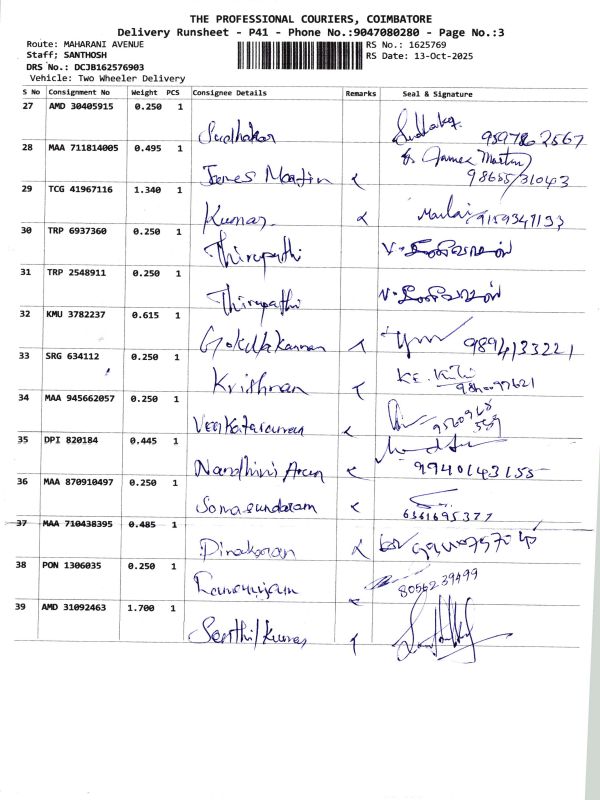 THE PROFESSIONAL COURIERS, COIMBATORE
Delivery Runsheet - P41 - Phone No.:9047080280 - Page No.:3
Route: MAHARANI AVENUE RS No.: 1625769
Staff; SANTHOSH RS Date: 13-Oct-2025
DRS No.: DCJB162576903
Vehicle: Two Wheeler Delivery
S No Consignment No Weight PCS Consignee Details Remarks Seal & Signature
27 AMD 30405915 0.250 1
Sudhakar
28 MAA 711814005 0.495 1
James Martin James Martin
98655/31043
29 TCG 41967116 1.340 1
Kumar
30 TRP 6937360 0.250 1
Thirupathi
31 TRP 2548911 0.250 1
Thirupathi
32 KMU 3782237 0.615 1
Gokulakannan 9894133221
33 SRG 634112 0.250 1
Krishnan
34 MAA 945662057 0.250 1
Venkataraman
35 DPI 820184 0.445 1
Nandhini Arun 9940143155
36 MAA 870910497 0.250 1
Somasundaram 6361695377
37 MAA 710438395 0.485 1
Dinakaran
38 PON 1306035 0.250 1
8056239499
39 AMD 31092463 1.700 1
Senthilkumar